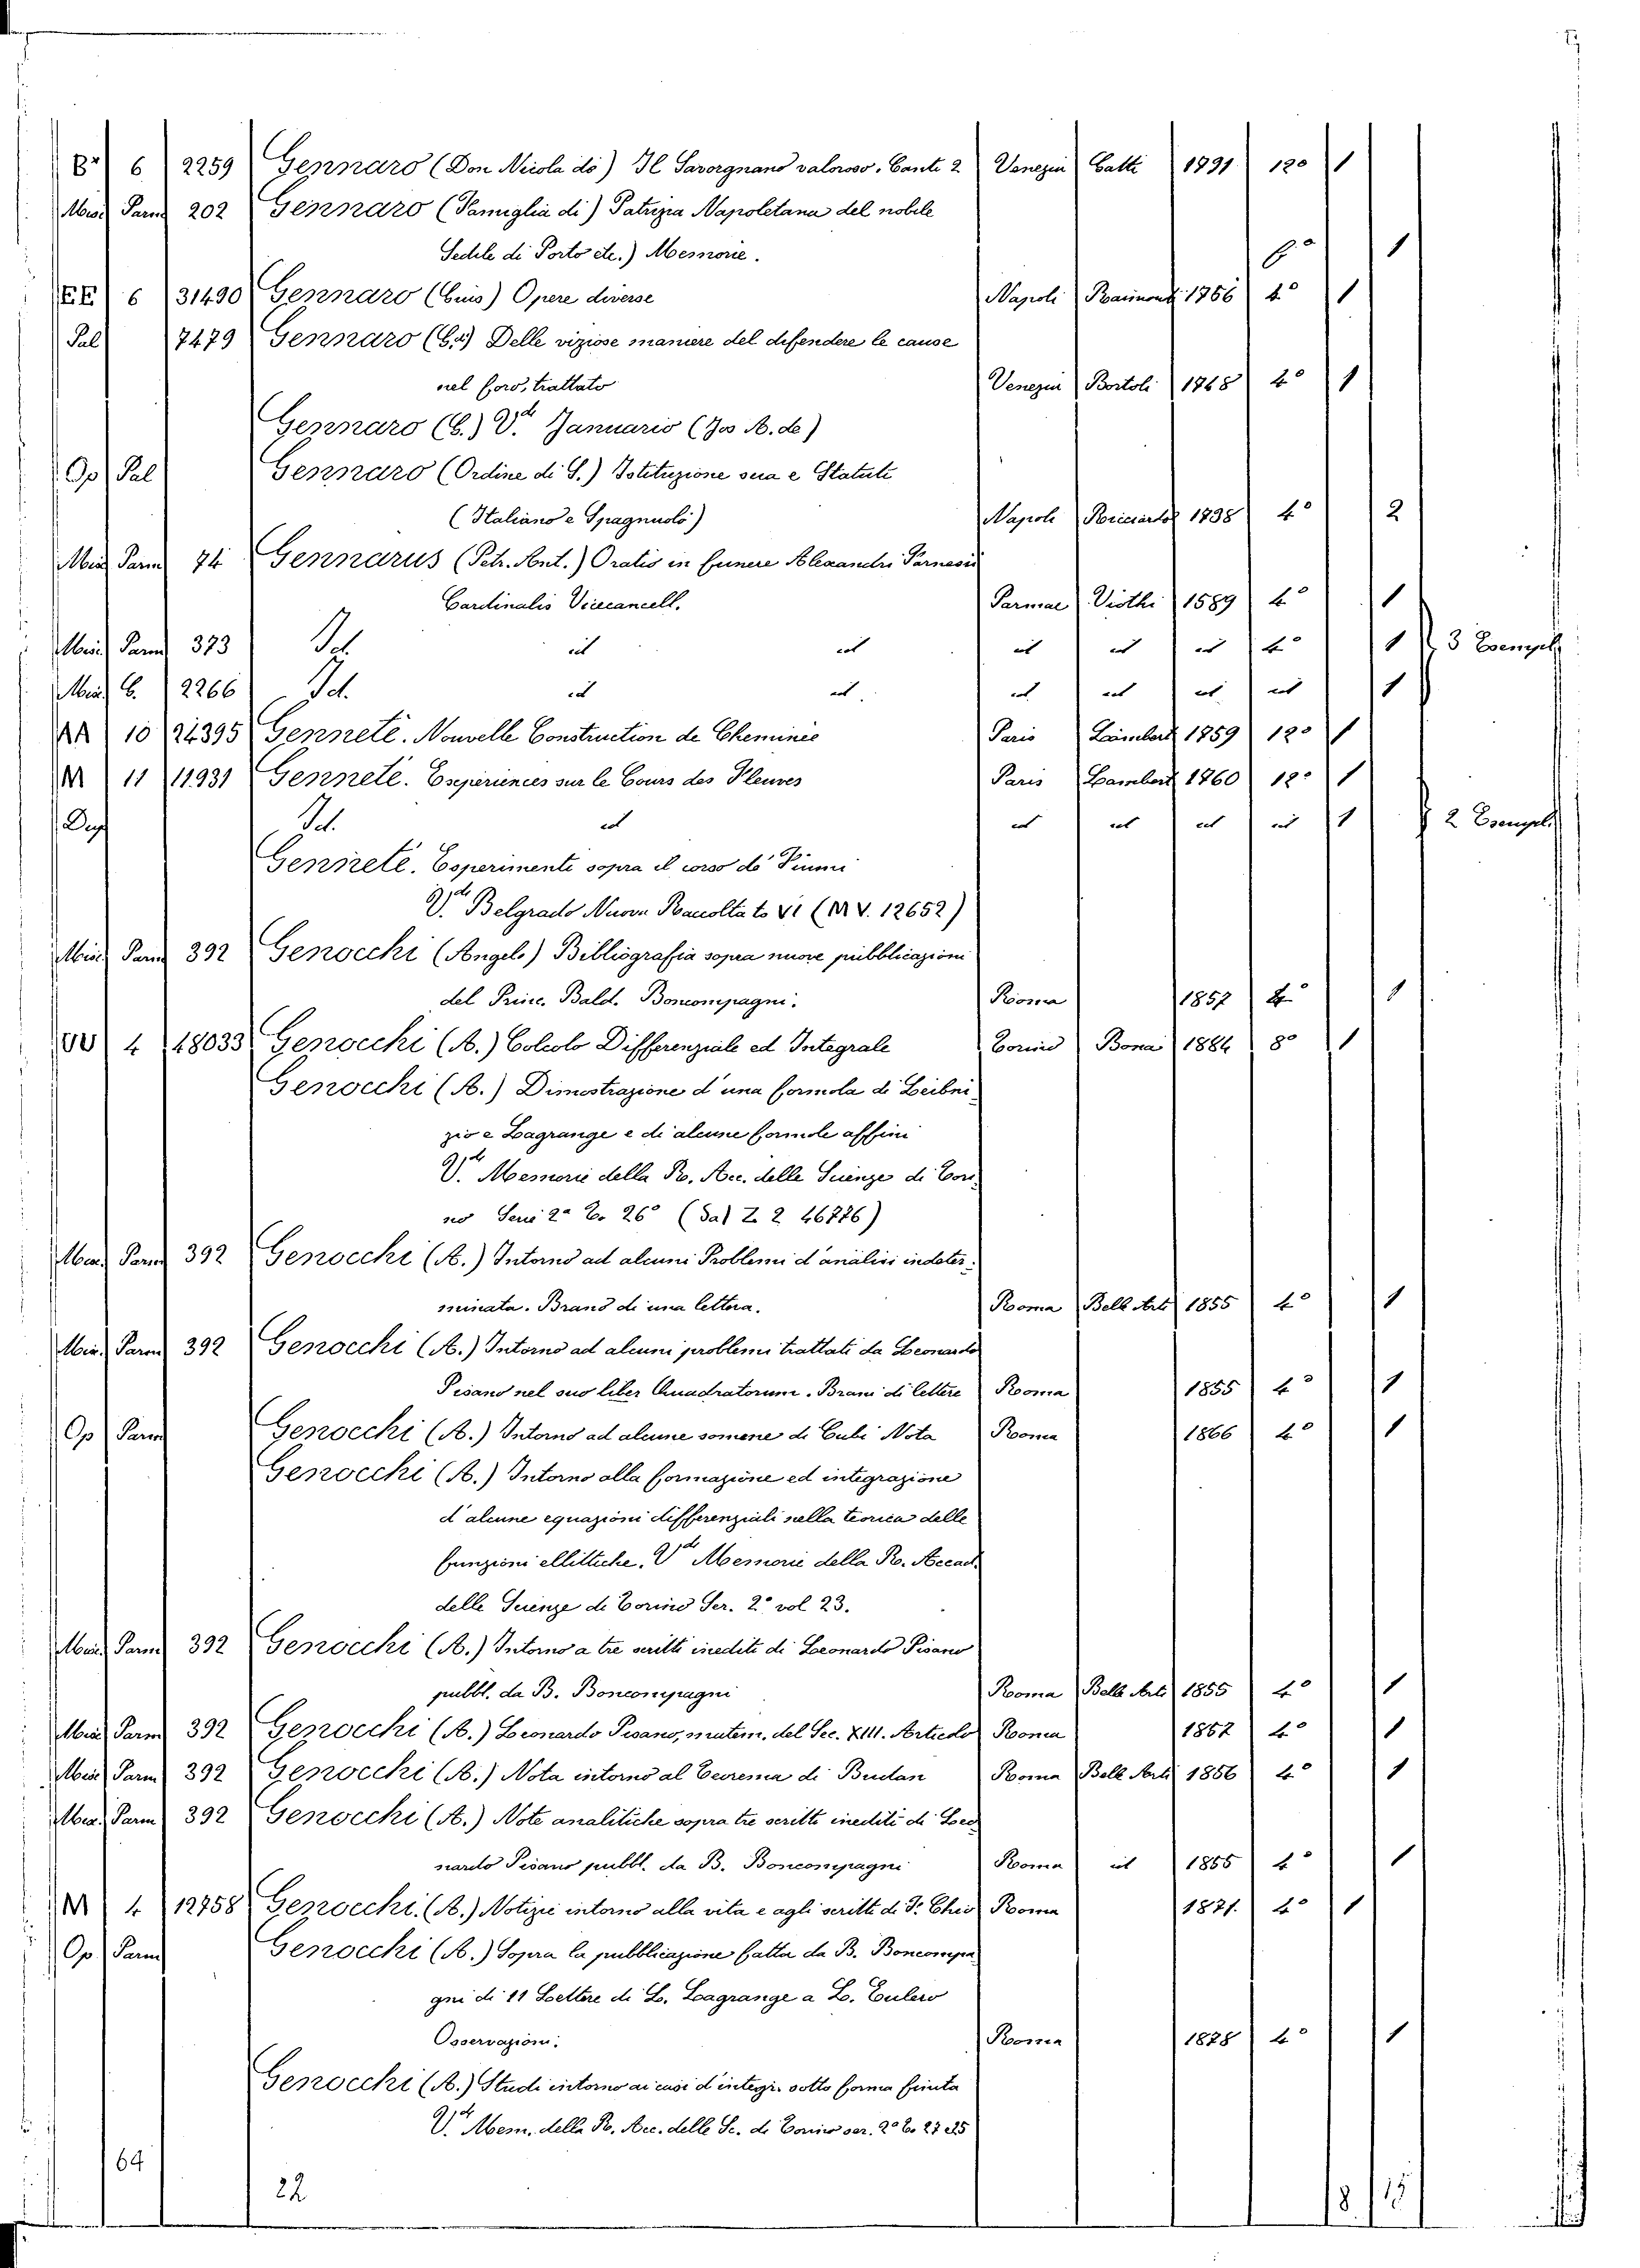 Br 6 2259 Gennaro (Don Nicola di) Il Savorgnano valoroso. Canti 2 Venezia Gatti 1791 12o 1
Misc Parm 202 Gennaro (Famiglia di) Patrizia Napoletana del nobile
Sedile di Porto etc.) Memorie. 6o 1
EE 6 31490 Gennaro (Gius) Opere diverse Napoli Raimondi 1756 4o 1
Pal 7479 Gennaro (G.A) Delle viziose maniere del defendere le cause
nel foro, trattato Venezia Bortoli 1748 4o 1
Gennaro (G.) Vd. Januario (Jos A. de)
Op Pal Gennaro (Ordine di S.) Istituzione sua e Statuti
(Italiano e Spagnuolo) Napoli Ricciardo 1738 4o 2
Misc Parm 74 Gennarus (Petr. Ant.) Oratio in funere Alexandri Farnesii
Cardinalis Vicecancell. Parmae Viothi 1589 4o 1
Misc Parm 373 Id. id id id id id 4o 1 3 Esempl
Misc C. 2266 Id. id id id id id id 1
AA 10 24395 Genneté. Nouvelle Construction de Cheminée Paris Lambert 1759 12o 1
M 11 11931 Genneté. Experiences sur le Cours des Fleuves Paris Lambert 1760 12o 1
Dup Id. id id id id id 1 2 Esempl
Genneté. Esperimenti sopra il corso de' Fiumi
Vd. Belgrado Nuova Raccolta to VI (M V. 12652)
Misc Parm 392 Genocchi (Angelo) Bibliografia sopra nuove pubblicazioni
del Princ. Bald. Boncompagni. Roma 1857 4o 1
VV 4 48033 Genocchi (A.) Colcolo Differenziale ed Integrale Torino Bona 1884 8o 1
Genocchi (A.) Dimostrazione d'una formola di Leibni
zio e Lagrange e di alcune formole affini
Vd. Memorie della R. Acc. delle Scienze di Tori
no Serie 2a T. 26o (Sal Z 2 46776)
Misc Parm 392 Genocchi (A.) Intorno ad alcuni Problemi d'analisi indeter
minata. Brano di una lettera. Roma Bell Arti 1855 4o 1
Misc Parm 392 Genocchi (A.) Intorno ad alcuni problemi trattati da Leonardo
Pisano nel suo liber Quadratorum. Brani di lettere Roma 1855 4o 1
Op Parm Genocchi (A.) Intorno ad alcune somene di Cubi Nota Roma 1866 4o 1
Genocchi (A.) Intorno alla formazione ed integrazione
d'alcune equazioni differenziali nella teorica delle
funzioni ellittiche. Vd Memorie della R. Accad.
delle Scienze di Torino Ser. 2a vol 23.
Misc Parm 392 Genocchi (A.) Intorno a tre scritti inediti di Leonardo Pisano
pubbl. da B. Boncompagni Roma Bell Arti 1855 4o 1
Misc Parm 392 Genocchi (A.) Leonardo Pisano, matem. del Sec. XIII. Articolo Roma 1857 4o 1
Misc Parm 392 Genocchi (A.) Nota intorno al Teorema di Budan Roma Bell Arti 1856 4o 1
Misc Parm 392 Genocchi (A.) Note analitiche sopra tre scritti inediti di Leo
nardo Pisano pubbl. da B. Boncompagni Roma id 1855 4o 1
M 4 12758 Genocchi. (A.) Notizie intorno alla vita e agli scritti di F. Chio Roma 1871. 4o 1
Op Parm Genocchi (A.) Sopra la pubblicazione fatta da B. Boncompa
gni di 11 Lettere di L. Lagrange a L. Eulero
Osservazioni. Roma 1878 4o 1
Genocchi (A.) Studi intorno ai casi d'integr. sotto forma finita
Vd. Mem. della R. Acc. delle Sc. di Torino ser. 2a T. 23 25
64
22 8 15